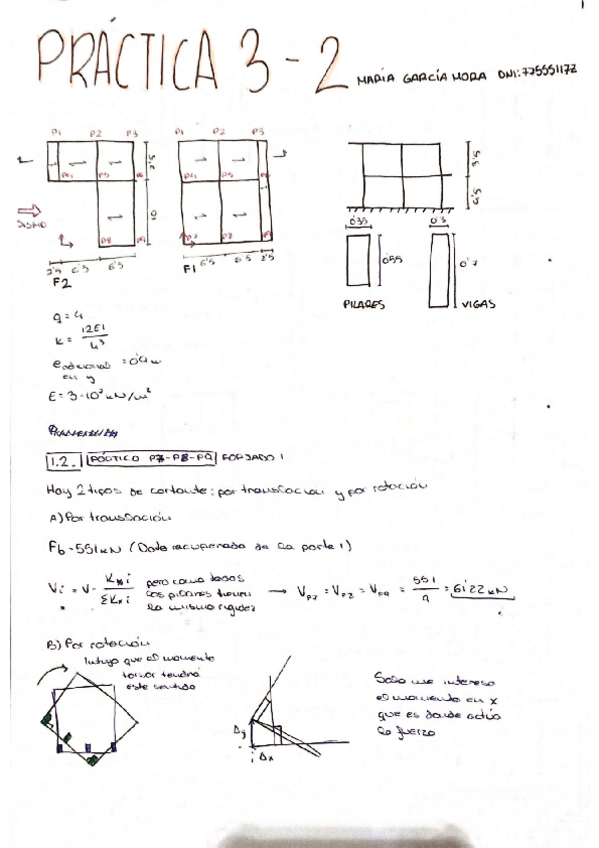 PRÁCTICA 3-2 MARÍA GARCÍA MORA DNI:77555117Z
P1 P2 P3 P1 P2 P3
P4 P5 P6 P4 P5 P6
SISMO
P8 P9 P7 P8
2'5 6'5 6'5 6'5 6'5 2'5
F2 F1
3'5
3'5
0'35 0'3
0'55 0'7
PILARES VIGAS
q = 4
K = 12EI / h³
e adicional en y = 0'4 m
E = 3·10⁷ kN/m²
1.2. PÓRTICO P7-P8-P9 FORJADO 1
Hay 2 tipos de cortante: por translación y por rotación
A) Por translación
Fb = 551 kN (Dato recuperado de la parte 1)
Vi = V· Kxi / ΣKxi pero como todos los pilares tienen la misma rigidez → VP7 = VP8 = VP9 = 551 / 9 = 61'22 kN
B) Por rotación
Intuyo que el momento
torsor tendrá
este sentido
Δy
Δx
Solo me interesa
el momento en x
que es donde actúa
la fuerza